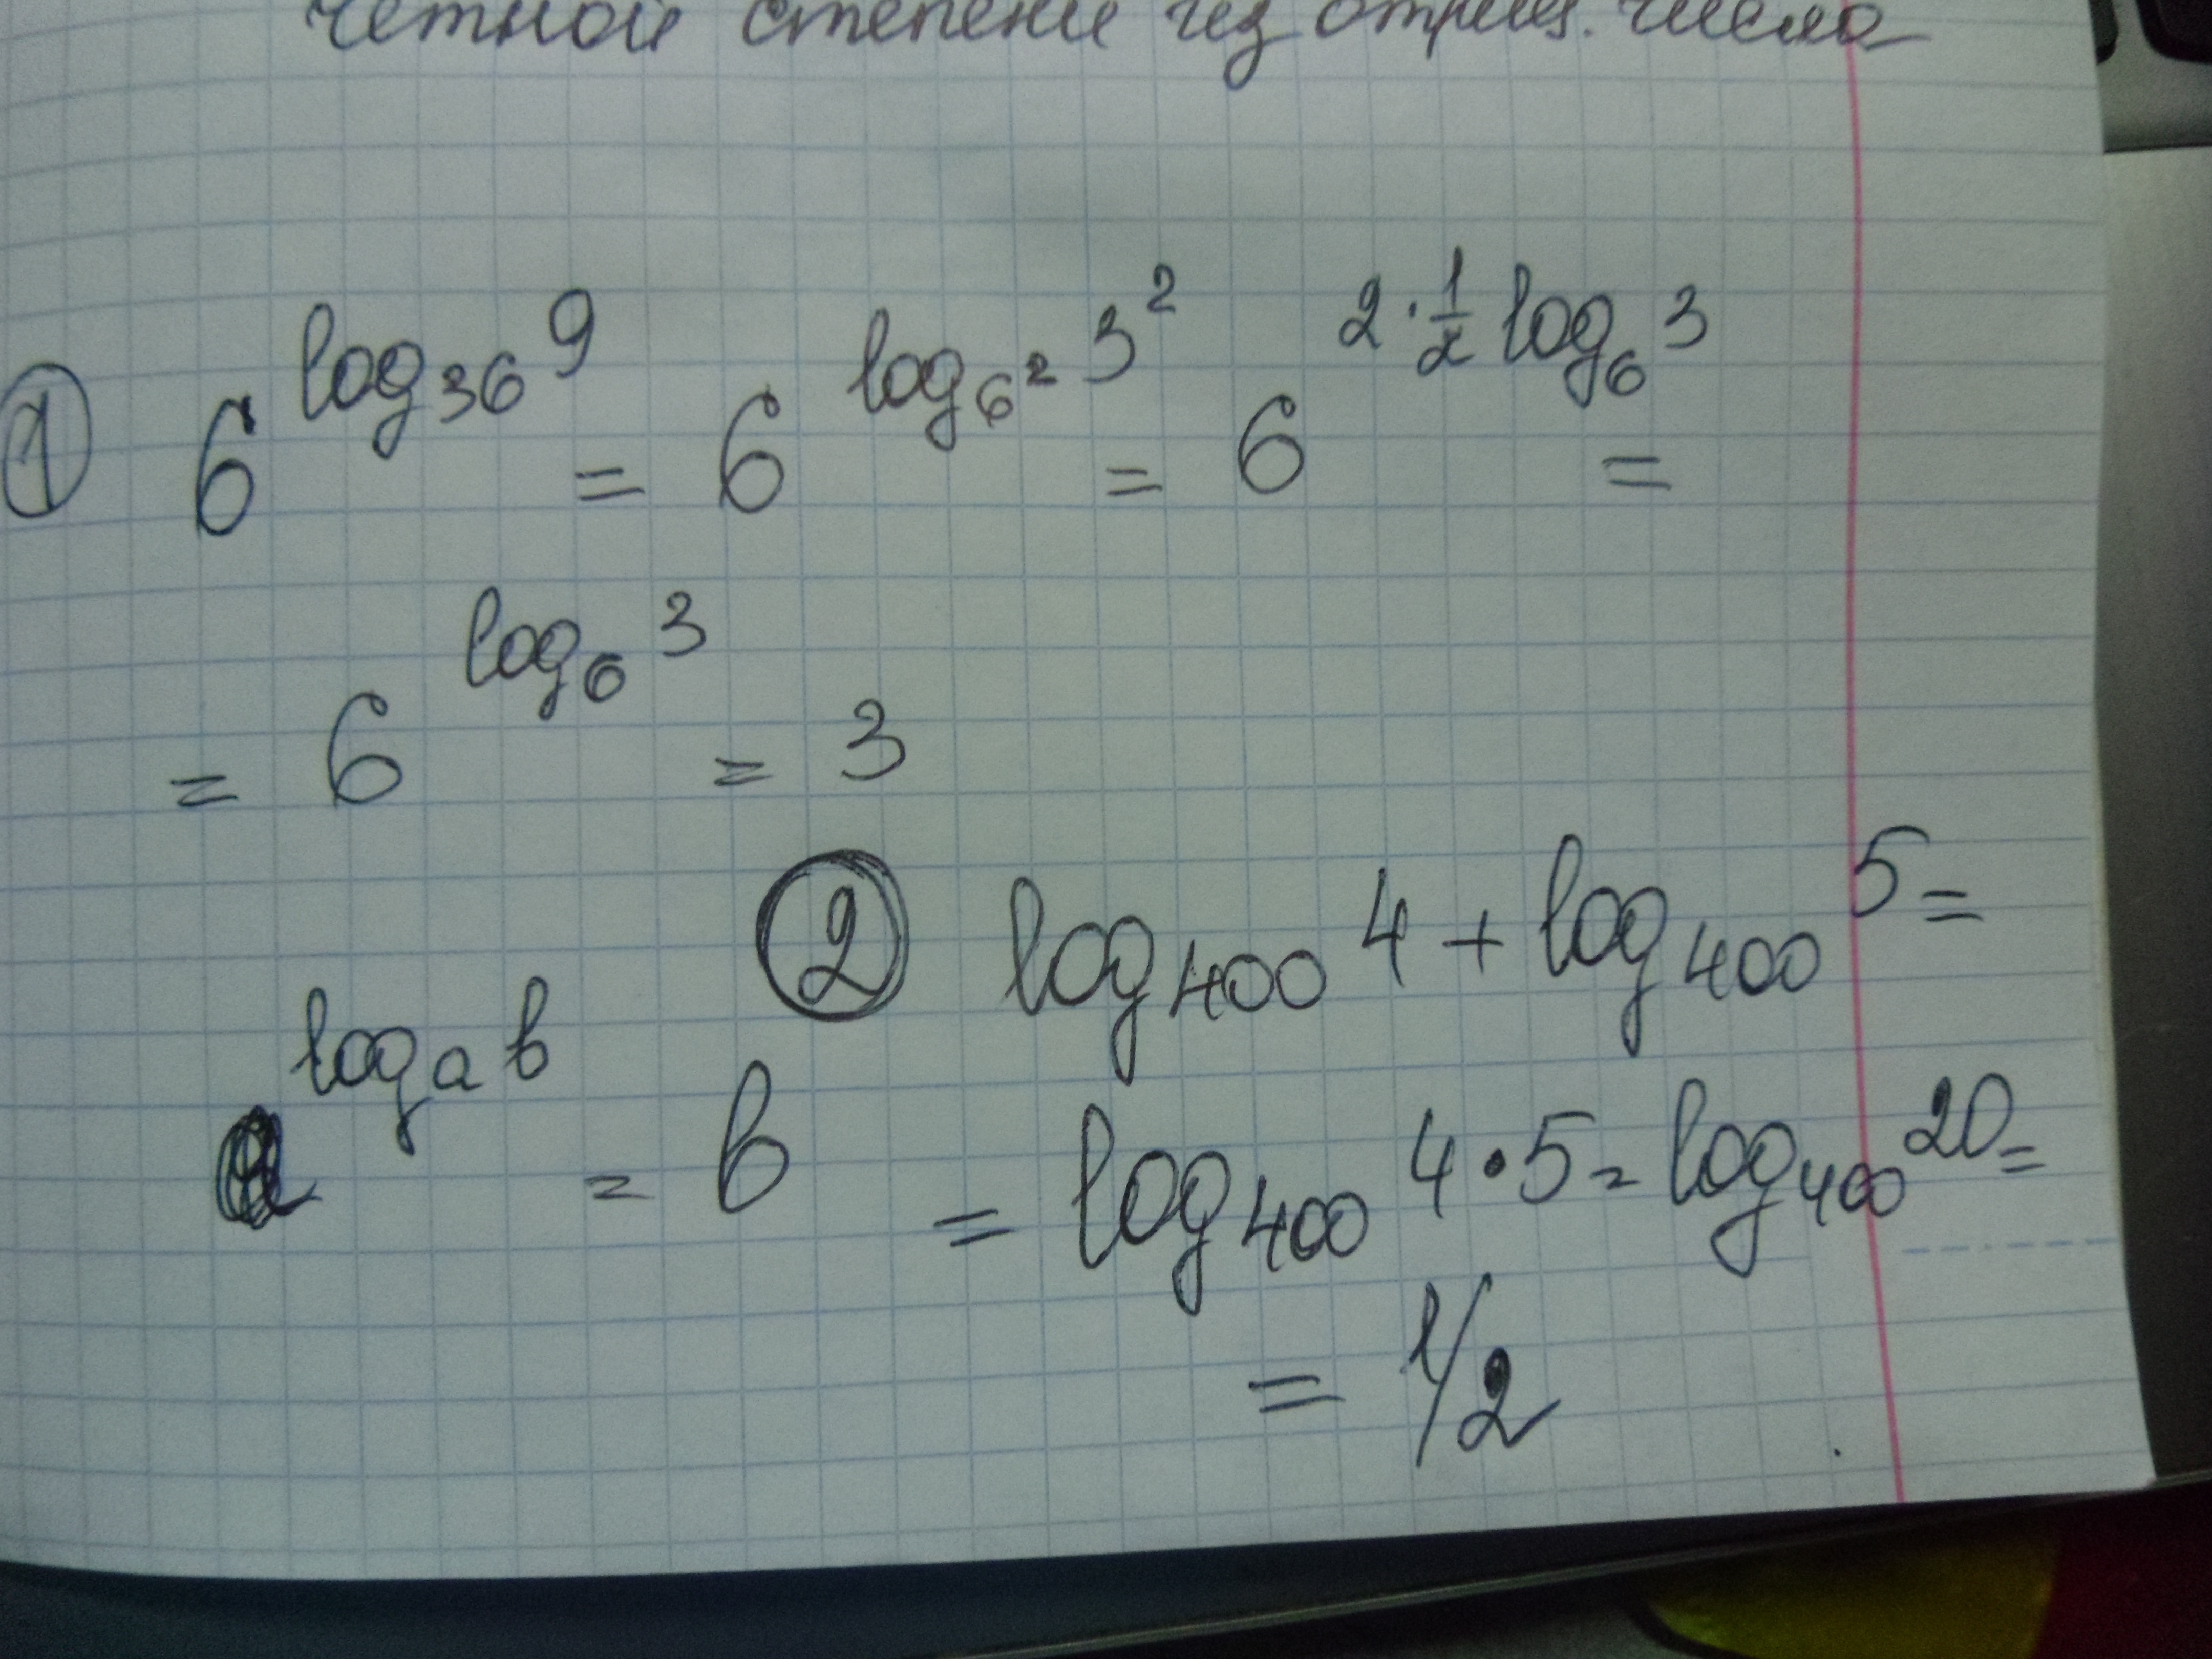 четной степени из отриц. числа
① 6^{log_{36} 9} = 6^{log_{6^2} 3^2} = 6^{2·\frac{1}{2} log_6 3} =
= 6^{log_6 3} = 3
② log_{400} 4 + log_{400} 5 =
a^{log_a b} = b
= log_{400} 4·5 = log_{400} 20 =
= 1/2